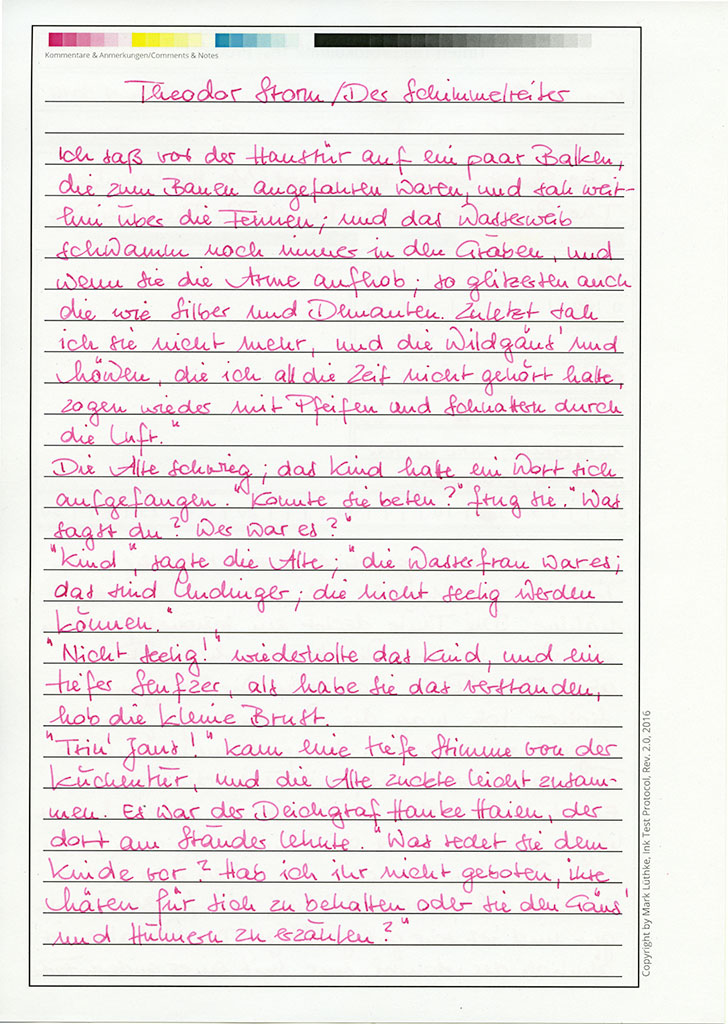 Kommentare & Anmerkungen/Comments & Notes
Theodor Storm/Der Schimmelreiter
Ich saß vor der Haustür auf ein paar Balken,
die zum Bauen angefahren waren, und sah weit-
hin über die Fennen; und das Wasserweib
schwamm noch immer in den Gräben, und
wenn sie die Arme aufhob; so glitzerten auch
die wie Silber und Demanten. Zuletzt sah
ich sie nicht mehr, und die Wildgäns' und
Möwen, die ich all die Zeit nicht gehört hatte,
zogen wieder mit Pfeifen und Schnattern durch
die Luft."
Die Alte schwieg; das Kind hatte ein Wort sich
aufgefangen. "Konnte sie beten?" frug sie. "Was
sagst du? Wer war es?"
"Kind", sagte die Alte; "die Wasserfrau war es;
das sind Undinger; die nicht seelig werden
können."
"Nicht seelig!" wiederholte das Kind, und ein
tiefer Seufzer, als habe sie das verstanden,
hob die kleine Brust.
"Trin' Jans!" kam eine tiefe Stimme von der
Küchentür, und die Alte zuckte leicht zusam-
men. Es war der Deichgraf Hauke Haien, der
dort am Ständer lehnte. "Was redet sie dem
Kinde vor? Hab ich ihr nicht geboten, ihre
Mären für sich zu behalten oder sie den Gäns'
und Hühnern zu erzählen?"
Copyright by Mark Luthke, Ink Test Protocol, Rev. 2.0, 2016